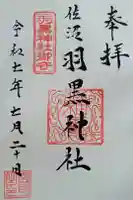 奉拝
佐渡
羽黒神社
令和七年七月二十日